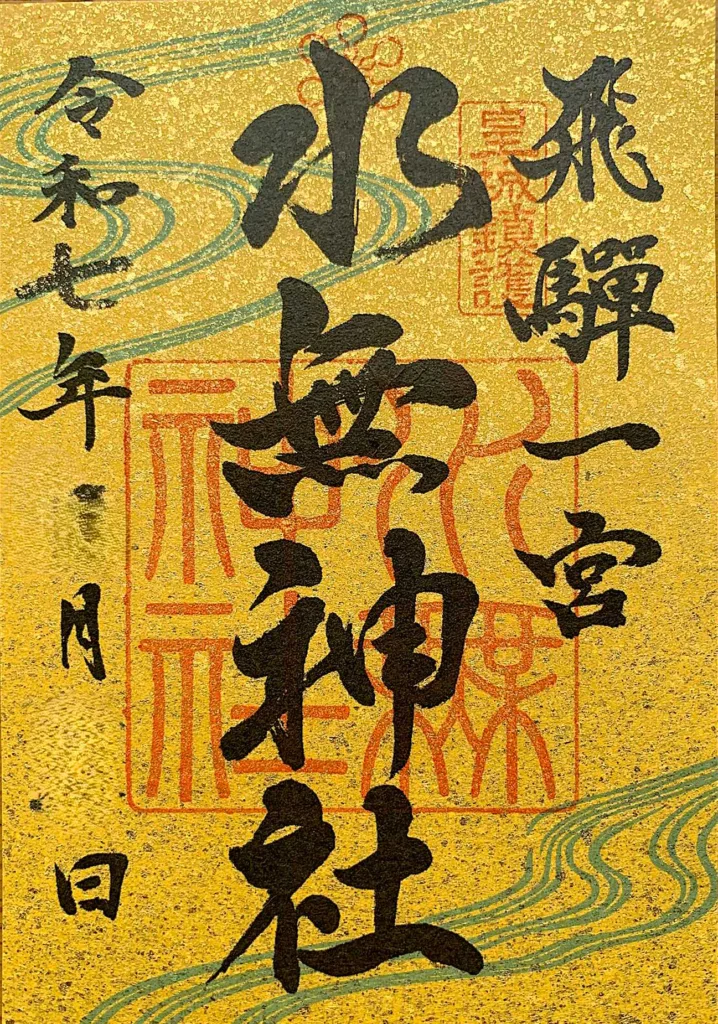 飛驒一宮
皇城鎮護
水無神社
水無神社
令和七年 月 日